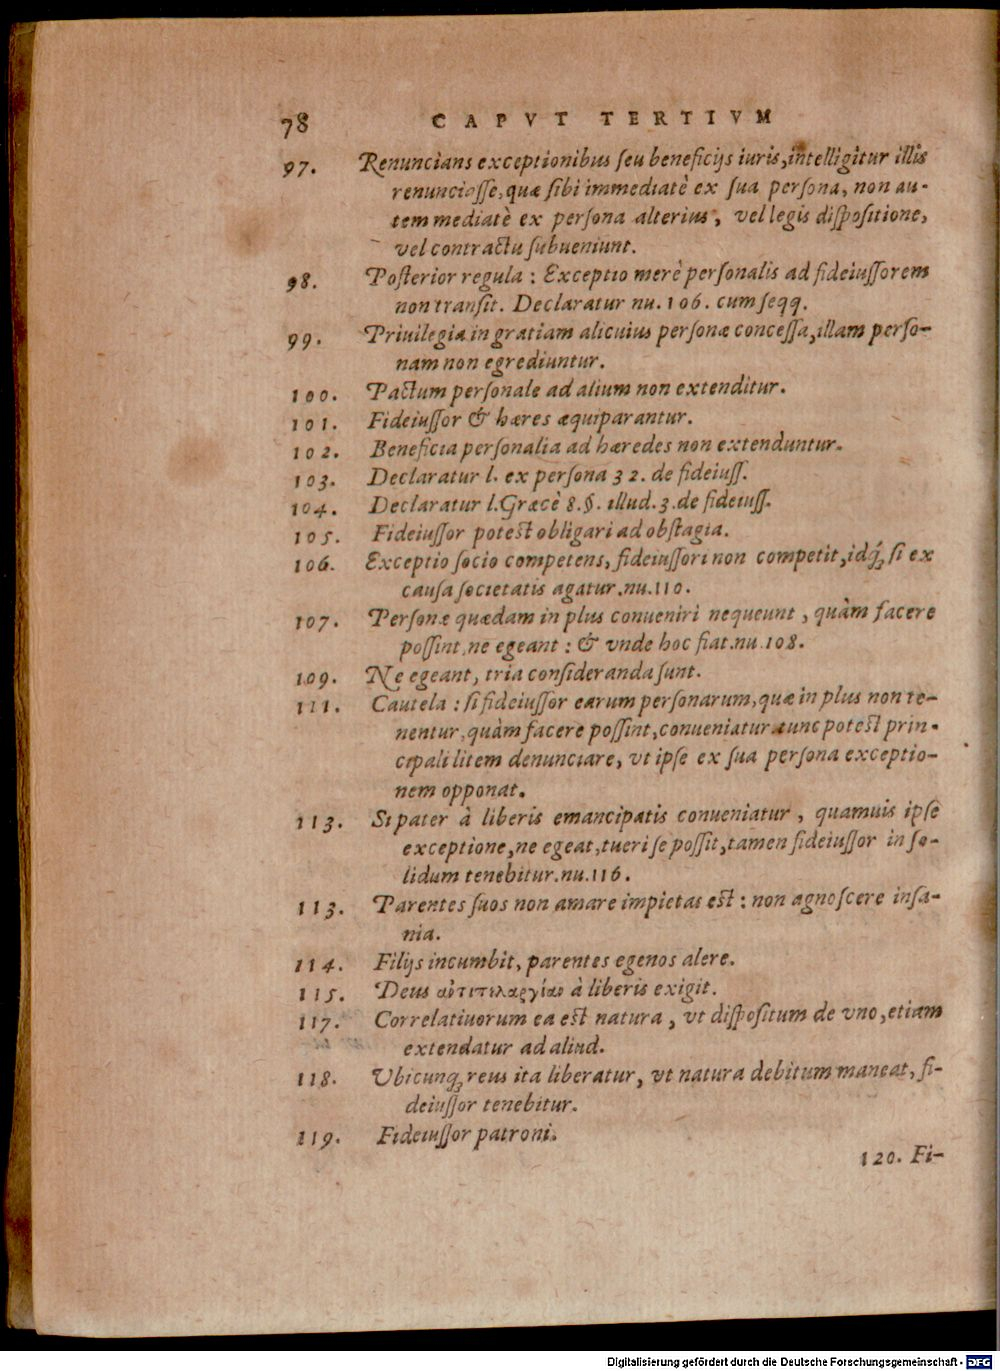 78 CAPVT TERTIVM
97. Renuncians exceptionibus seu beneficijs iuris, intelligitur illis
renunciasse, quæ sibi immediatè ex sua persona, non au-
tem mediatè ex persona alterius, vel legis dispositione,
vel contractu subueniunt.
98. Posterior regula: Exceptio merè personalis ad fideiussorem
non transit. Declaratur nu. 106. cum seqq.
99. Priuilegia in gratiam alicuius personæ concessa, illam perso-
nam non egrediuntur.
100. Pactum personale ad alium non extenditur.
101. Fideiussor & hæres æquiparantur.
102. Beneficia personalia ad hæredes non extenduntur.
103. Declaratur l. ex persona 32. de fideiuss.
104. Declaratur l. Græcè 8. §. illud. 3. de fideiuss.
105. Fideiussor potest obligari ad obstagia.
106. Exceptio socio competens, fideiussori non competit, idq́; si ex
causa societatis agatur. nu. 110.
107. Personæ quædam in plus conueniri nequeunt, quàm facere
possint, ne egeant: & vnde hoc fiat. nu. 108.
109. Ne egeant, tria consideranda sunt.
111. Cautela: si fideiussor earum personarum, quæ in plus non te-
nentur, quàm facere possint, conueniatur tunc potest prin-
cipali litem denunciare, vt ipse ex sua persona exceptio-
nem opponat.
113. Si pater à liberis emancipatis conueniatur, quamuis ipse
exceptione, ne egeat, tueri se possit, tamen fideiussor in so-
lidum tenebitur. nu. 116.
113. Parentes suos non amare impietas est: non agnoscere insa-
nia.
114. Filijs incumbit, parentes egenos alere.
115. Deus à liberis exigit.
117. Correlatiuorum ea est natura, vt dispositum de vno, etiam
extendatur ad aliud.
118. Vbicunq; reus ita liberatur, vt natura debitum maneat, fi-
deiussor tenebitur.
119. Fideiussor patroni.
120. Fi-
Digitalisierung gefördert durch die Deutsche Forschungsgemeinschaft - DFG